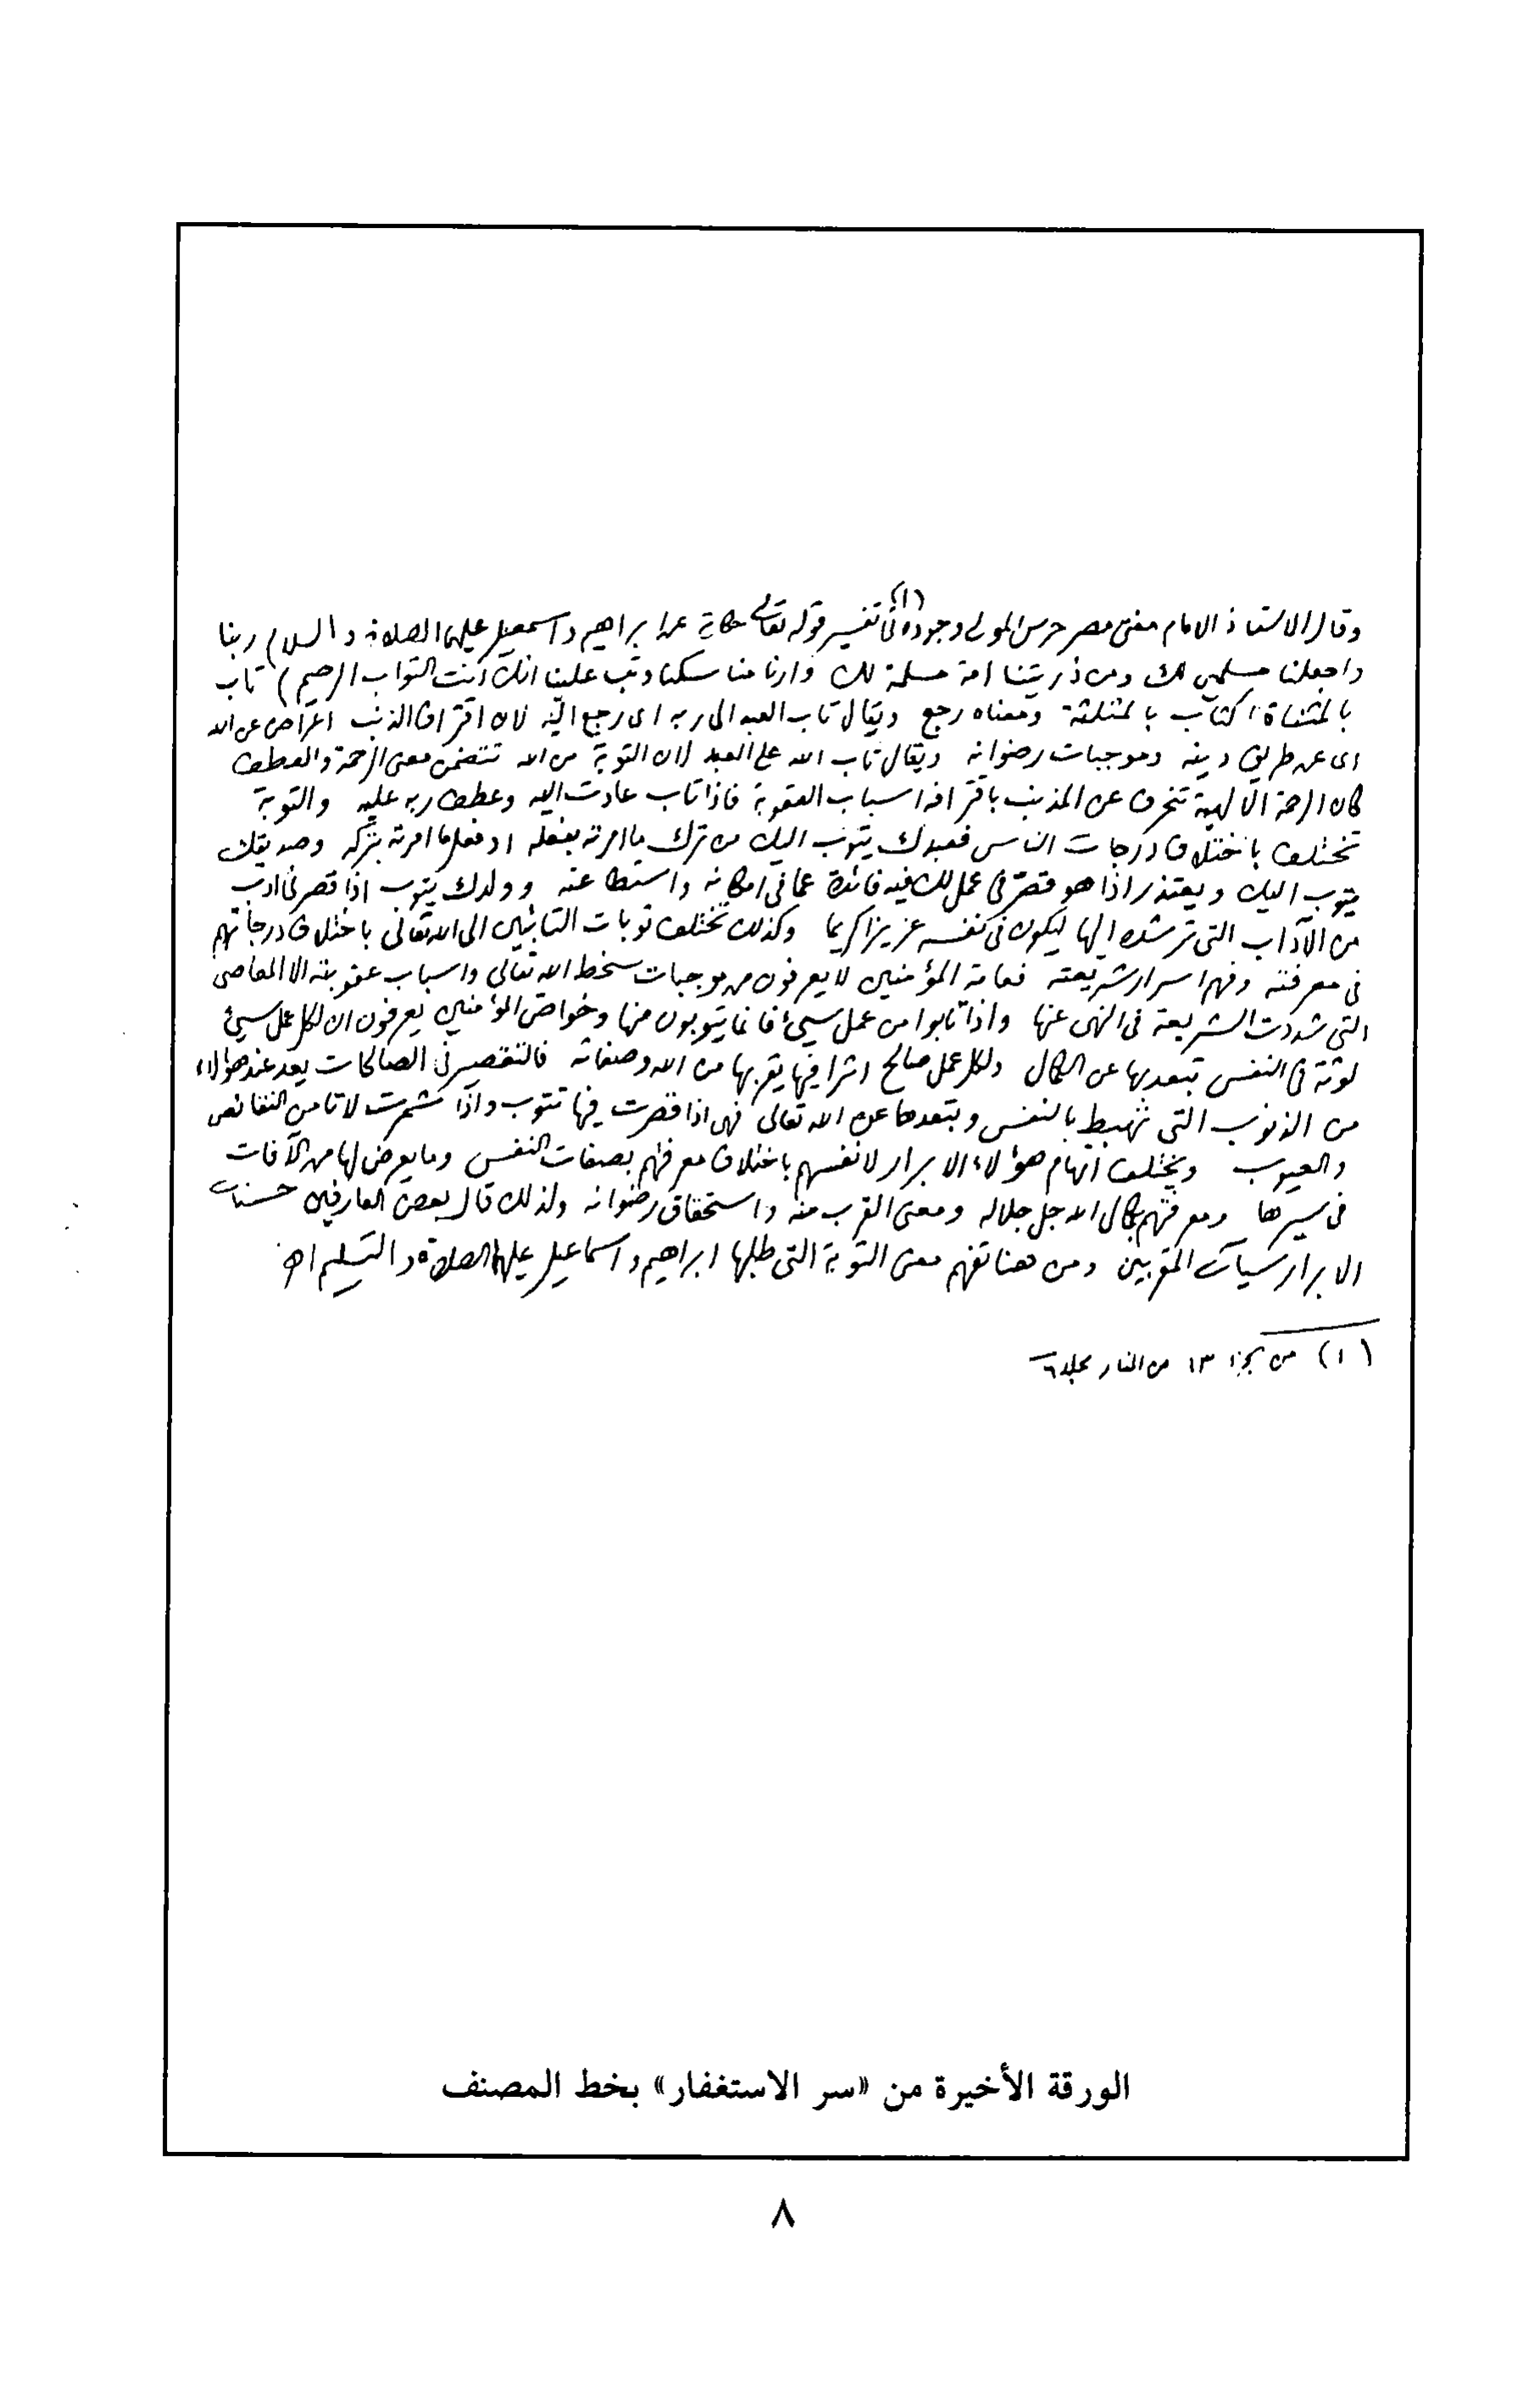 وقال الاستاذ الامام مفتى مصر حرس المولى وجوده (١) فى تفسير قوله تعالى حكاية عن ابراهيم واسمعيل عليهما الصلاة والسلام ربنا
واجعلنا مسلمين لك ومن ذريتنا امة مسلمة لك وارنا مناسكنا وتب علينا انك انت التواب الرحيم) تاب
بالمثناة كثاب بالمثلثة ومعناه رجع ويقال تاب العبد الى ربه اى رجع اليه لان اقتراف الذنب اعراض عن الله
اى عن طريق دينه وموجبات رضوانه ويقال تاب الله على العبد لان التوبة من الله تتضمن معنى الرحمة والعطف
كان الرحمة الالهية تنحرف عن المذنب باقترافه اسباب العقوبة فاذا تاب عادت اليه وعطف ربه عليه والتوبة
تختلف باختلاف درجات الناس فعبدك يتوب اليك من ترك ما امرته بفعله او فعل ما امرته بتركه وصديقك
يتوب اليك ويعتذر اذا هو قصر فى عمل لك فيه فائدة عما فى امكانه واستطاعته وولدك يتوب اذا قصر فى ادب
من الآداب التى ترشده اليها ليكون فى نفسه عزيزا كريما وكذلك تختلف توبات التائبين الى الله تعالى باختلاف درجاتهم
فى معرفته وفهم اسرار شريعته فعامة المؤمنين لا يعرفون من موجبات سخط الله تعالى واسباب عقوبته الا المعاصى
التى شددت الشريعة فى النهى عنها واذا تابوا من عمل سيئ فانما يتوبون منها وخواص المؤمنين يعرفون ان لكل عمل سيئ
لوثة فى النفس تبعد بها عن الكمال ولكل عمل صالح اثرا فيها يقربها من الله وصفاته فالتقصير فى الصالحات يعد عند هؤلاء
من الذنوب التى تهبط بالنفس وتبعدها عن الله تعالى فهى اذا قصرت فيها تتوب واذا شمرت لا تامن النقائص
والعيوب ويختلف اتهام هؤلاء الابرار لانفسهم باختلاف معرفتهم بصفات النفس وما يعرض لها من الآفات
فى سيرها ومعرفتهم بكمال الله جل جلاله ومعنى القرب منه واستحقاق رضوانه ولذلك قال بعض العارفين حسنات
الابرار سيآت المقربين ومن هنا تفهم معنى التوبة التى طلبها ابراهيم واسماعيل عليهما الصلاة والتسليم اهـ
(١) من جزء ١٣ من المنار مجلد ٦
الورقة الأخيرة من «سر الاستغفار» بخط المصنف
٨